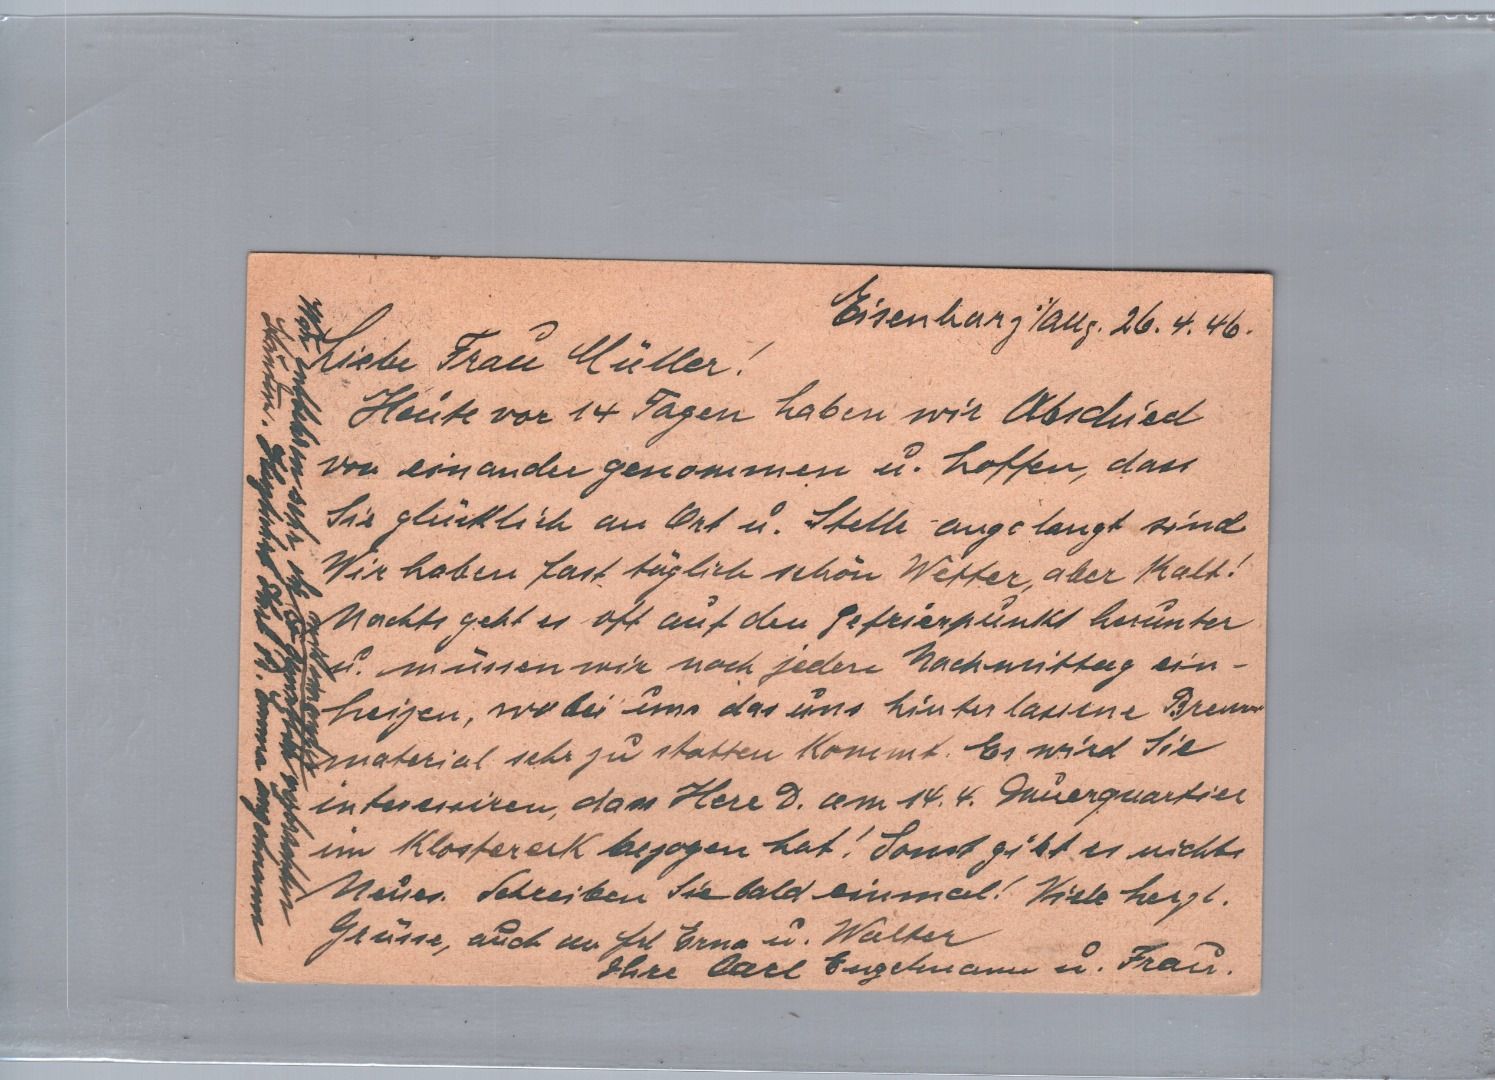 Eisenharz i/allg. 26.4.46.
Liebe Frau Müller!
Heute vor 14 Tagen haben wir Abschied
von einander genommen u. hoffen, dass
Sie glücklich an Ort u. Stelle angelangt sind
Wir haben fast täglich schön Wetter, aber Kalt!
Nachts geht es oft auf den Gefrierpunkt herunter
u. müssen wir noch jeden Nachmittag ein-
heizen, wobei uns das uns hinterlassene Brenn
material sehr zu statten kommt. Es wird Sie
interessiren, dass Herr D. am 14.4. Dauerquartier
im Klostereck bezogen hat! Sonst gibt es nichts
Neues. Schreiben Sie bald einmal! Viele herzl.
Grüsse, auch an frl Erna u. Walter
Ihre Carl Engelmann u. Frau.
Wir sehr die
Emma Engelmann